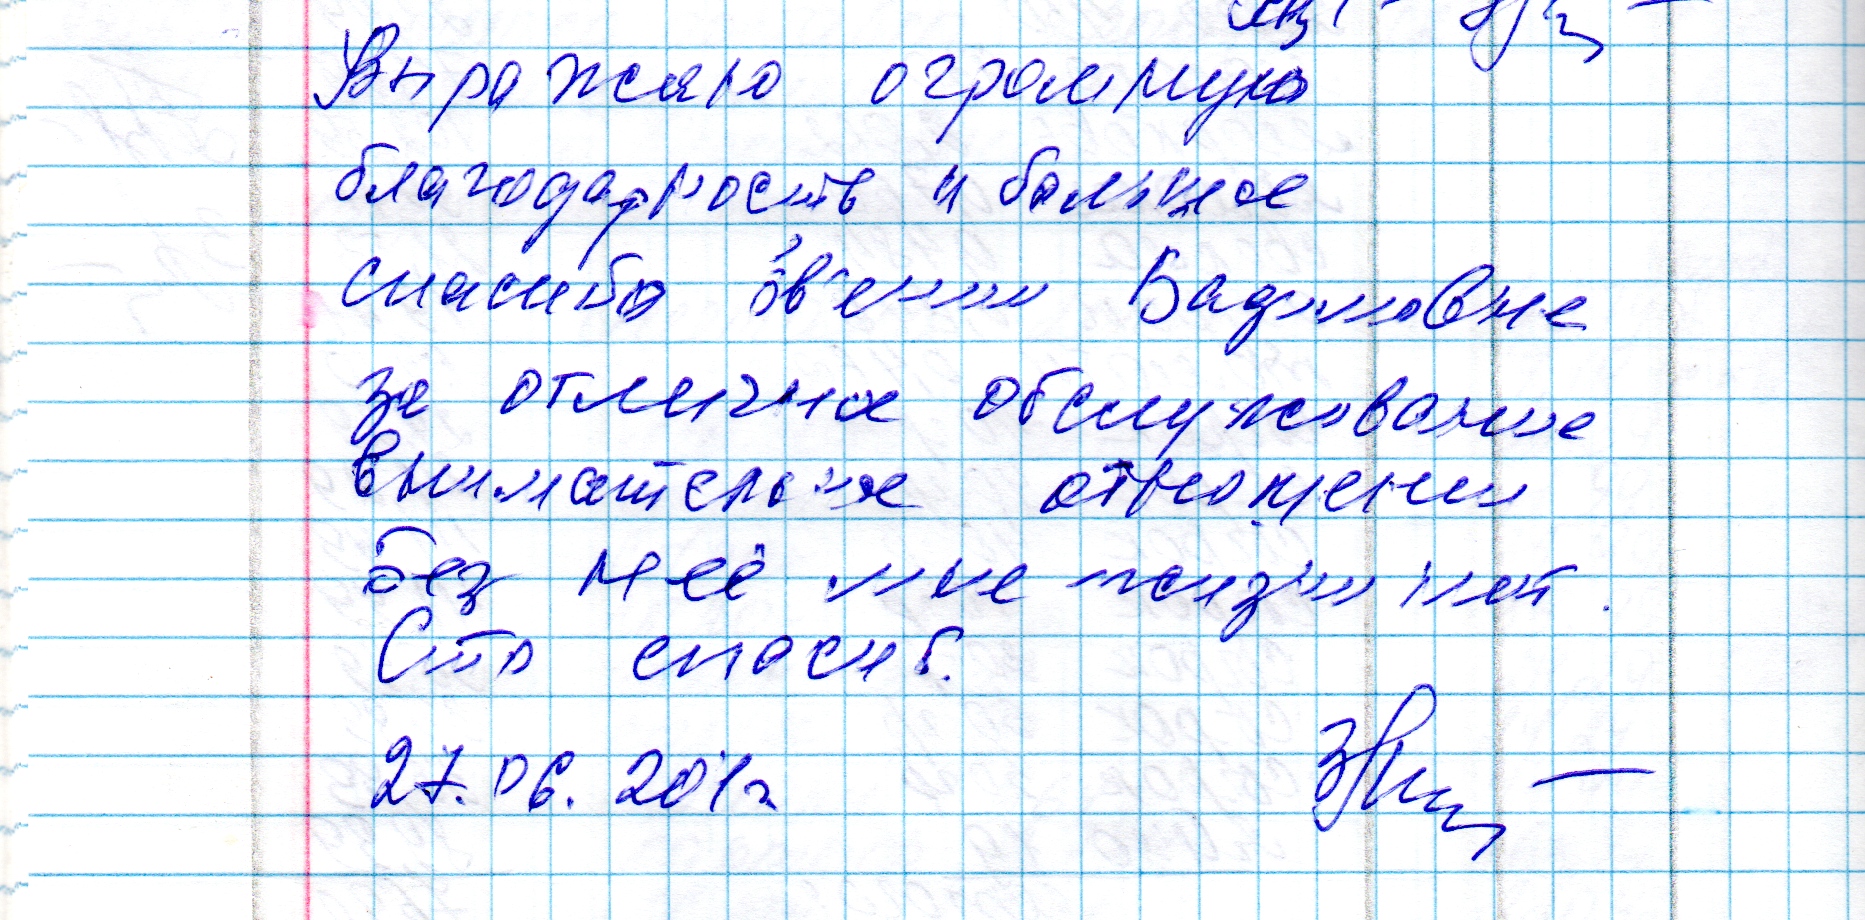 Выражаю огромную
благодарность и большое
спасибо Вадимовне
за отличное обслуживание
внимательное отношении
Без неё мне жизни нет.
Сто спасиб.
27.06.201г